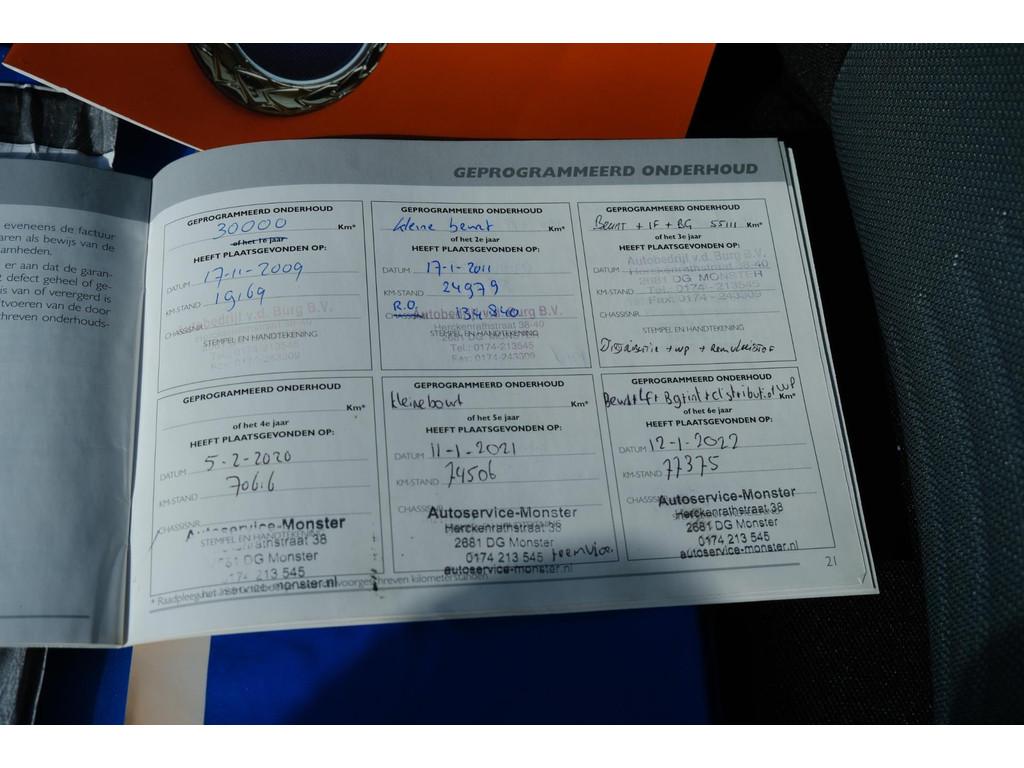 eveneens de factuur
aren als bewijs van de
amheden.
er aan dat de garan-
defect geheel of ge-
is van of verergerd is
tvoeren van de door
chreven onderhouds-
GEPROGRAMMEERD ONDERHOUD
GEPROGRAMMEERD ONDERHOUD
30000 Km*
of het 1e jaar
HEEFT PLAATSGEVONDEN OP:
DATUM 17-11-2009
KM-STAND 19169
CHASSISNR.
STEMPEL EN HANDTEKENING
obedrijf v.d. Burg B.V.
Tel.: 0174-213545
Fax: 0174-243309
GEPROGRAMMEERD ONDERHOUD
kleine beurt Km*
of het 2e jaar
HEEFT PLAATSGEVONDEN OP:
DATUM 17-1-2011
KM-STAND 24979
R.O. 134840
CHASSISNR.
Autobedrijf v.d. Burg B.V.
STEMPEL EN HANDTEKENING
Herckenrathstraat 38-40
2681 DG MONSTER
Tel.: 0174-213545
Fax: 0174-243309
GEPROGRAMMEERD ONDERHOUD
Beurt + IF + BG 55111 Km*
of het 3e jaar
HEEFT PLAATSGEVONDEN OP:
Autobedrijf v.d. Burg B.V.
DATUM Herckenrathstraat 38-40
2681 DG MONSTER
KM-STAND Tel.: 0174-213545
Fax: 0174-243309
CHASSISNR.
STEMPEL EN HANDTEKENING
Distributie + WP + Remvloeistof
GEPROGRAMMEERD ONDERHOUD
Km*
of het 4e jaar
HEEFT PLAATSGEVONDEN OP:
DATUM 5-2-2020
KM-STAND 70616
CHASSISNR.
Autoservice-Monster
STEMPEL EN HANDTEKENING
rathstraat 38
DG Monster
0174 213 545
autoservice-monster.nl
GEPROGRAMMEERD ONDERHOUD
kleine beurt Km*
of het 5e jaar
HEEFT PLAATSGEVONDEN OP:
DATUM 11-1-2021
KM-STAND 74506
CHASSISNR.
Autoservice-Monster
Herckenrathstraat 38
2681 DG Monster
0174 213 545
autoservice-monster.nl
GEPROGRAMMEERD ONDERHOUD
Beurt + lf + Bg + inl + distributie + WP
Km*
of het 6e jaar
HEEFT PLAATSGEVONDEN OP:
DATUM 12-1-2022
KM-STAND 77375
CHASSISNR.
Autoservice-Monster
Herckenrathstraat 38
2681 DG Monster
0174 213 545
autoservice-monster.nl
* Raadpleeg het voorgeschreven kilometerstanden
21